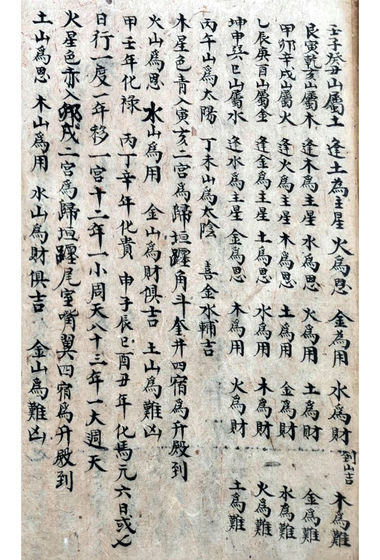 壬子癸丑山屬土 逢土為主星 火為恩 金為用 水為財 到山吉 木為難
艮寅乾亥山屬木 逢木為主星 水為恩 火為用 土為財 金為難
甲卯辛戌山屬火 逢火為主星 木為恩 土為用 金為財 水為難
乙辰庚酉山屬金 逢金為主星 土為恩 水為用 木為財 火為難
坤申巽巳山屬水 逢水為主星 金為恩 木為用 火為財 土為難
丙午山爲太陽 丁未山爲太陰 喜金水輔吉
木星色青入寅亥二宮爲歸垣躔角斗奎井四宿爲升殿到
火山爲恩 水山爲用 金山爲財俱吉 土山爲難凶
甲壬年化祿 丙丁辛年化貴 申子辰巳酉丑年化馬元六日或七
日行一度一年移一宮十二年一小周天八十三年一大週天
火星色赤入卯戌二宮爲歸垣躔尾室嘴翼四宿爲升殿到
土山爲恩 木山爲用 水山爲財俱吉 金山爲難凶